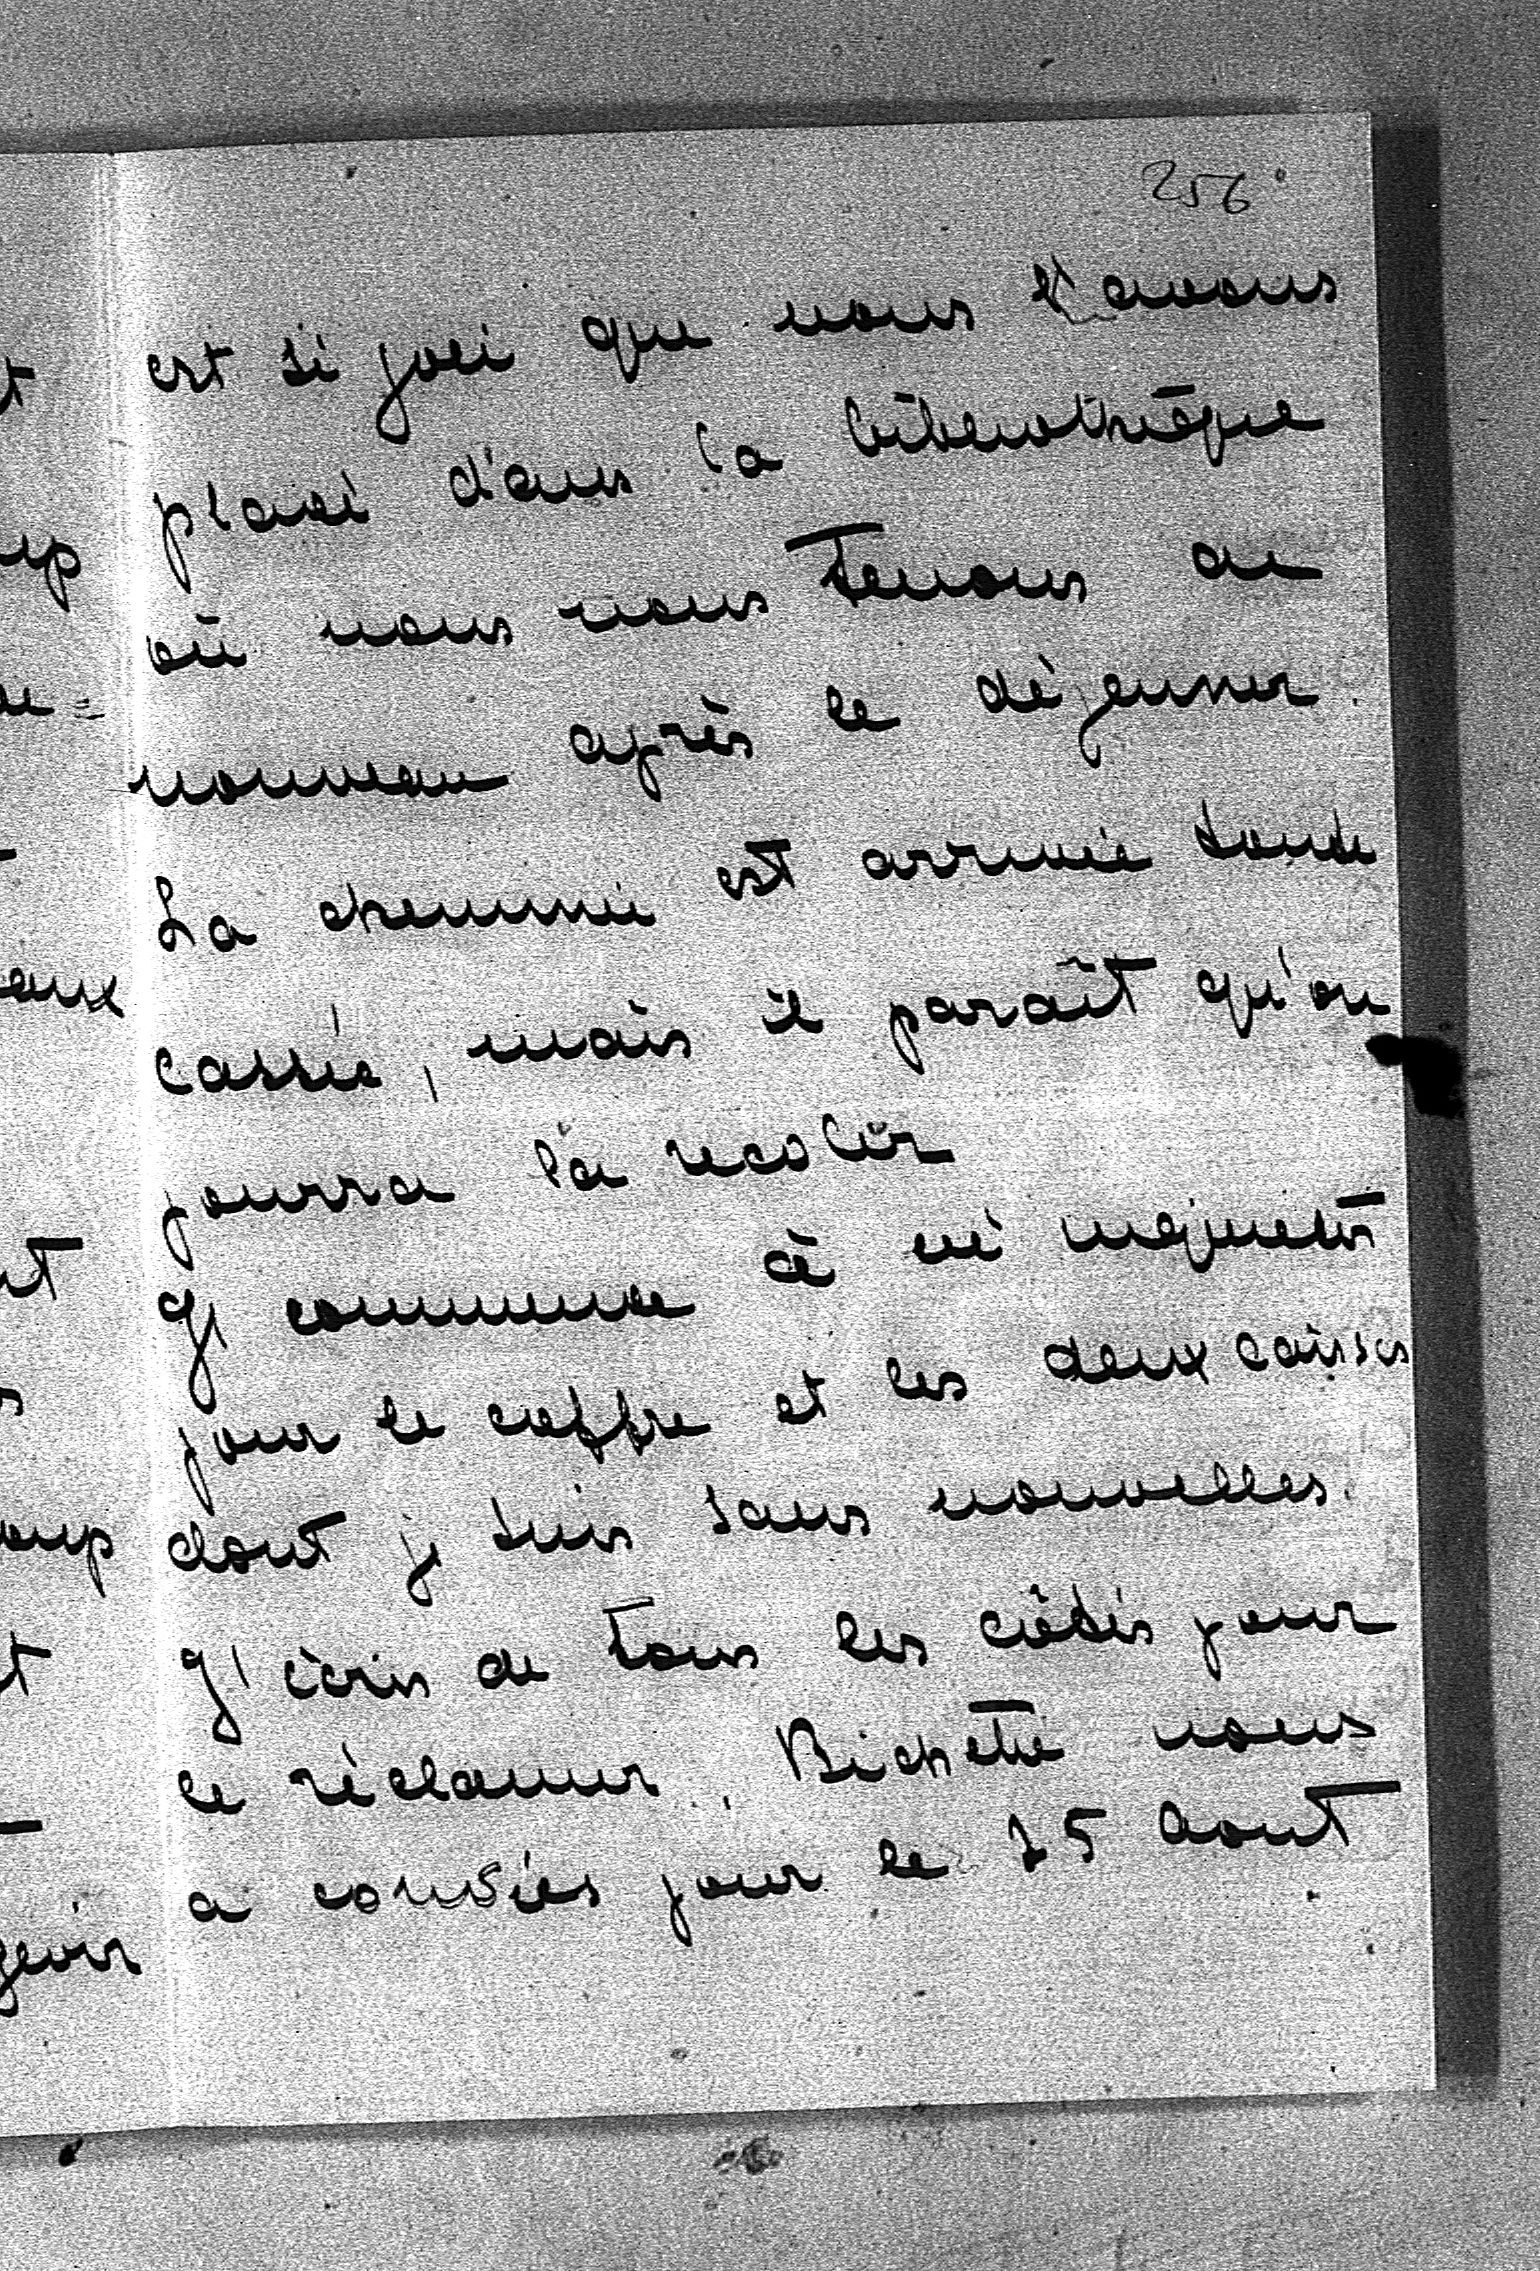 256
est si joli que nous l'avons
placé dans la bibliothèque
où nous nous tenons de
nouveau après le déjeuner.
La cheminée est arrivée toute
cassée, mais il paraît qu'on
pourra la recoller
Je commence à m'inquiéter
pour le coffre et les deux caisses
dont je suis sans nouvelles.
J'écris de tous les côtés pour
le réclamer. Bichette nous
a conviés pour le 15 Aout